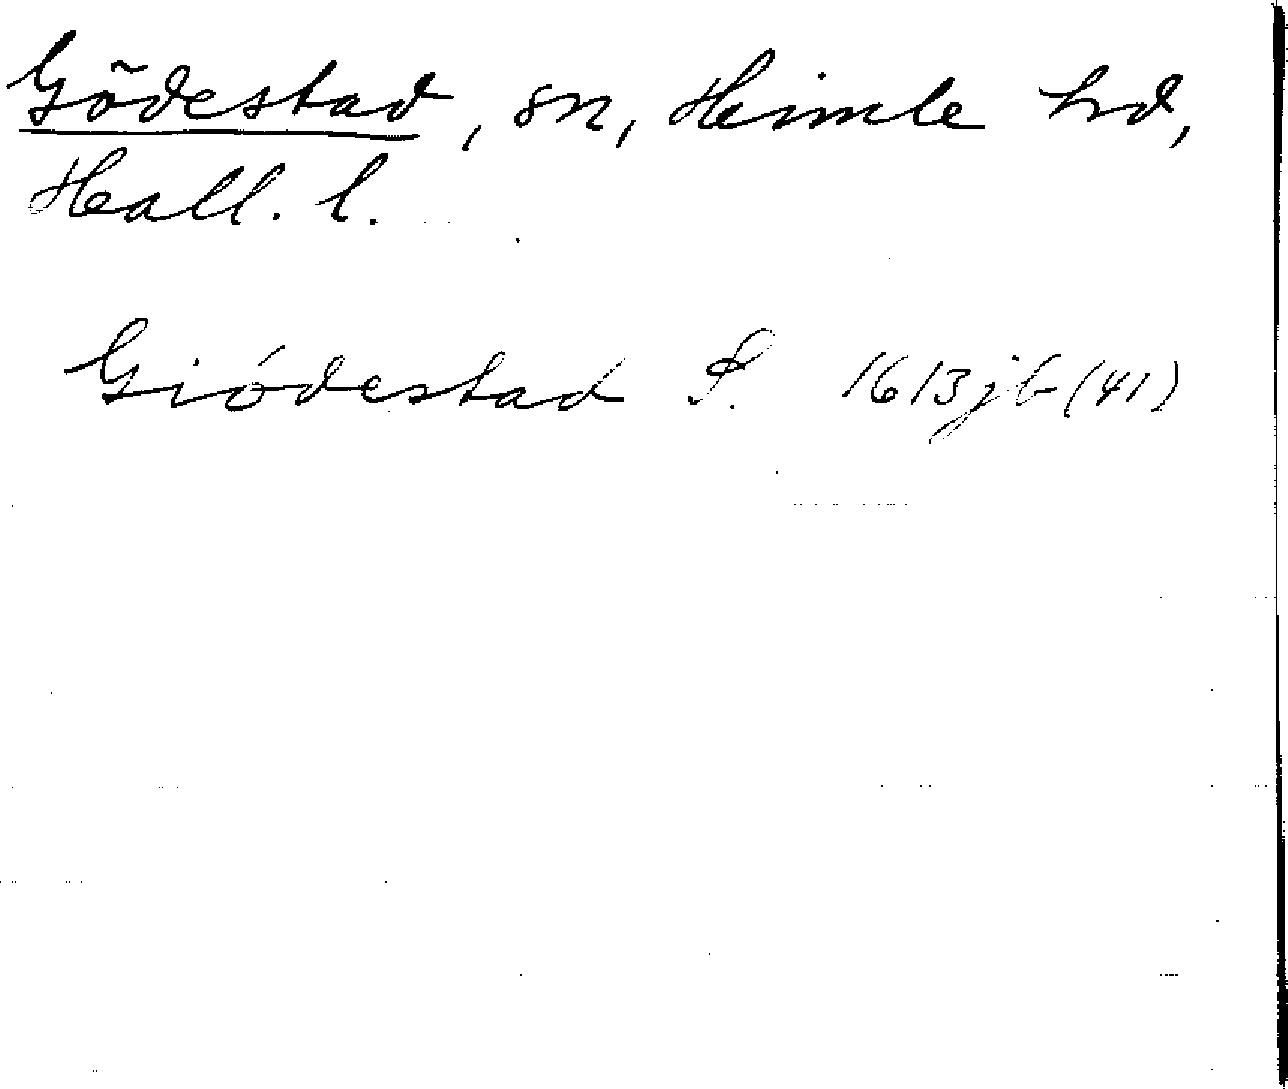 Gödestad, sn, Himle hd,
Hall. l.
Giódestad S. 1613 jb (41)